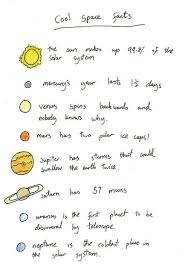 Cool Space Facts
the sun makes up 99.8% of the
solar system
mercury's year lasts days
venus spins backwards and
nobody knows why.
mars has two polar ice caps!
jupiter has storms that could
swallow the earth twice.
saturn has 57 moons
uranus is the first planet to be
discovered by telescope
neptune is the coldest place in
the solar system.